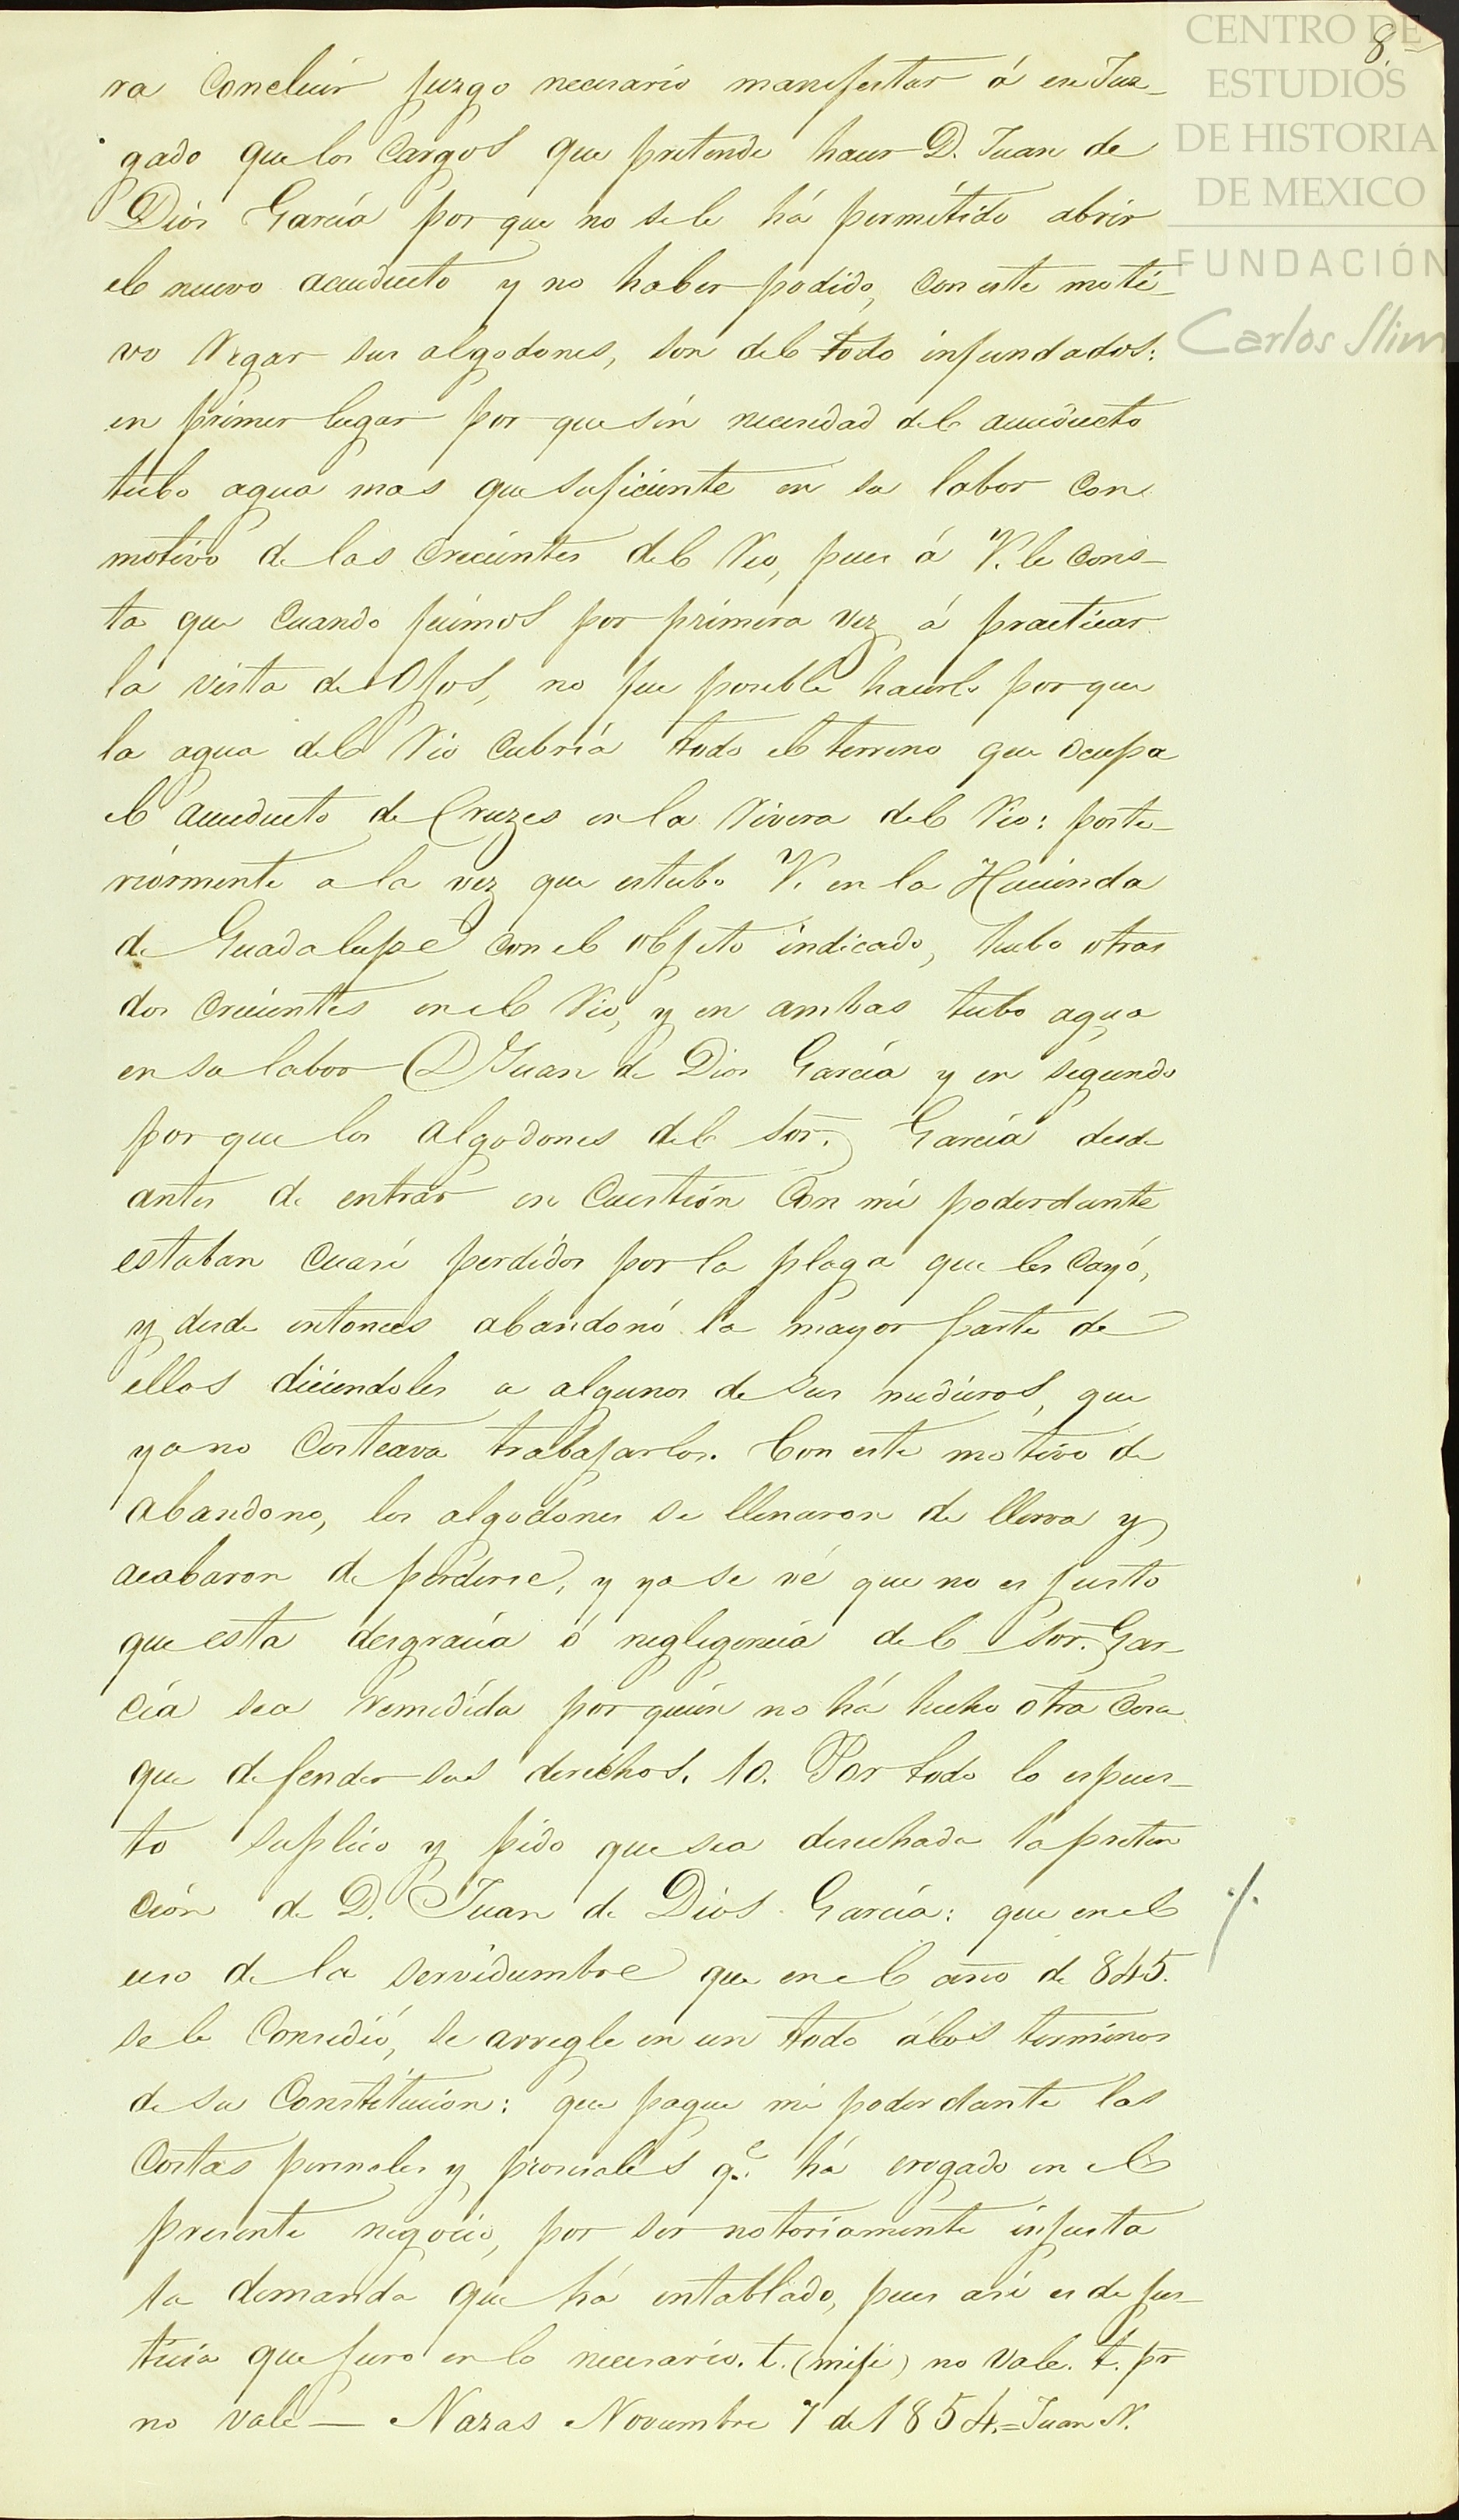 CENTRO DE
ESTUDIOS
DE HISTORIA
DE MEXICO
FUNDACIÓN
Carlos Slim
8.
ra concluir juzgo necesario manifestar á ese Juz-
gado que los cargos que pretende hacer D. Juan de
Dios García por que no se le há permitido abrir
el nuevo acueducto y no haber podido, con este moti-
vo regar sus algodones, son del todo infundados:
en primer lugar por que sin necesidad del acueducto
tubo agua mas que suficiente en su labor con
motivo de las crecientes del Rio, pues á V. le cons-
ta que cuando fuimos por primera vez á practicar
la vista de Ojos, no fue posible hacerlo porque
la agua del Rio cubría todo el terreno que ocupa
el acueducto de Cruzes en la Rivera del Rio: poste-
riormente a la vez que estubo V. en la Hacienda
de Guadalupe con el objeto indicado, hubo otras
dos crecientes en el Rio, y en ambas tubo agua
en su labor D. Juan de Dios García y en segundo
por que los algodones del Sor. García desde
antes de entrar en cuestión con mi poderdante
estaban cuasi perdidos por la plaga que les cayó,
y desde entonces abandonó la mayor parte de
ellos diciendoles a algunos de sus medieros, que
ya no costeava trabajarlos. Con este motivo de
abandono, los algodones se llenaron de llerva y
acabaron de perderse, y ya se vé que no es justo
que esta desgracia ó negligencia del Sor. Gar-
cía sea remedida por quien no há hecho otra cosa
que defender sus derechos. 10. Por todo lo espues-
to suplico y pido que sea desechada la preten
ción de D. Juan de Dios García: que en el
uso de la servidumbre que en el año de 845.
se le consedió, se arregle en un todo á los terminos
de su Constitucion: que pague mi poderdante las
costas personales y procesales q.e há erogado en el
presente negocio, por ser notoriamente injusta
la demanda que há entablado, pues asi es de jus-
ticia que juro en lo necesario. t. (mifi) no vale. t. pr
no vale — Nazas Noviembre 7 de 1854.=Juan N.